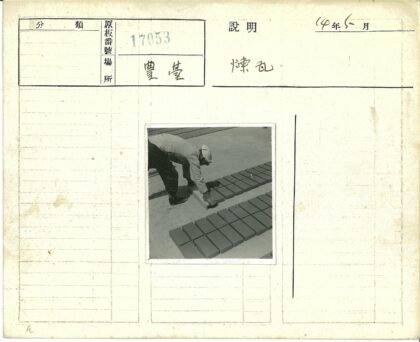 分類
原板番號
17053
場所
豐臺
說明
煉瓦
14年5月